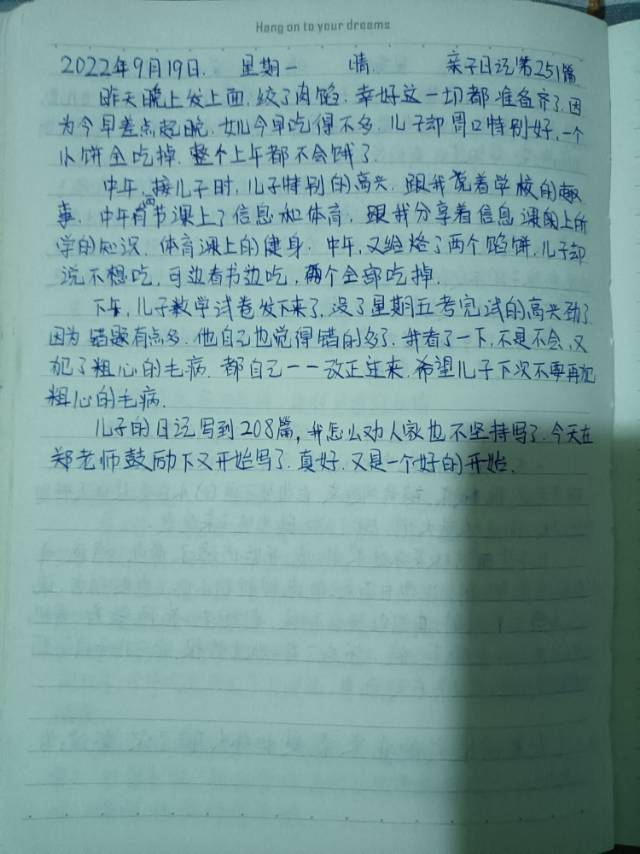 Hang on to your dreams
2022年9月19日. 星期一 晴 亲子日记第251篇
昨天晚上发上面,绞了肉馅.幸好这一切都准备齐了.因
为今早差点起晚.女儿今早吃得不多.儿子却胃口特别好,一个
小饼全吃掉.整个上午都不会饿了.
中午,接儿子时,儿子特别的高兴.跟我说着学校的趣
事.中午两节课上了信息和体育.跟我分享着信息课上所
学的知识.体育课上的健身.中午,又给烙了两个馅饼,儿子却
说不想吃,可边看书边吃,两个全部吃掉.
下午,儿子数学试卷发下来了,没了星期五考完试的高兴劲了.
因为错题有点多.他自己也觉得错的多了.我看了一下,不是不会,又
犯了粗心的毛病.都自己一一改正过来.希望儿子下次不要再犯
粗心的毛病.
儿子的日记写到208篇,我怎么劝人家也不坚持写了.今天在
郑老师鼓励下又开始写了.真好.又是一个好的开始.